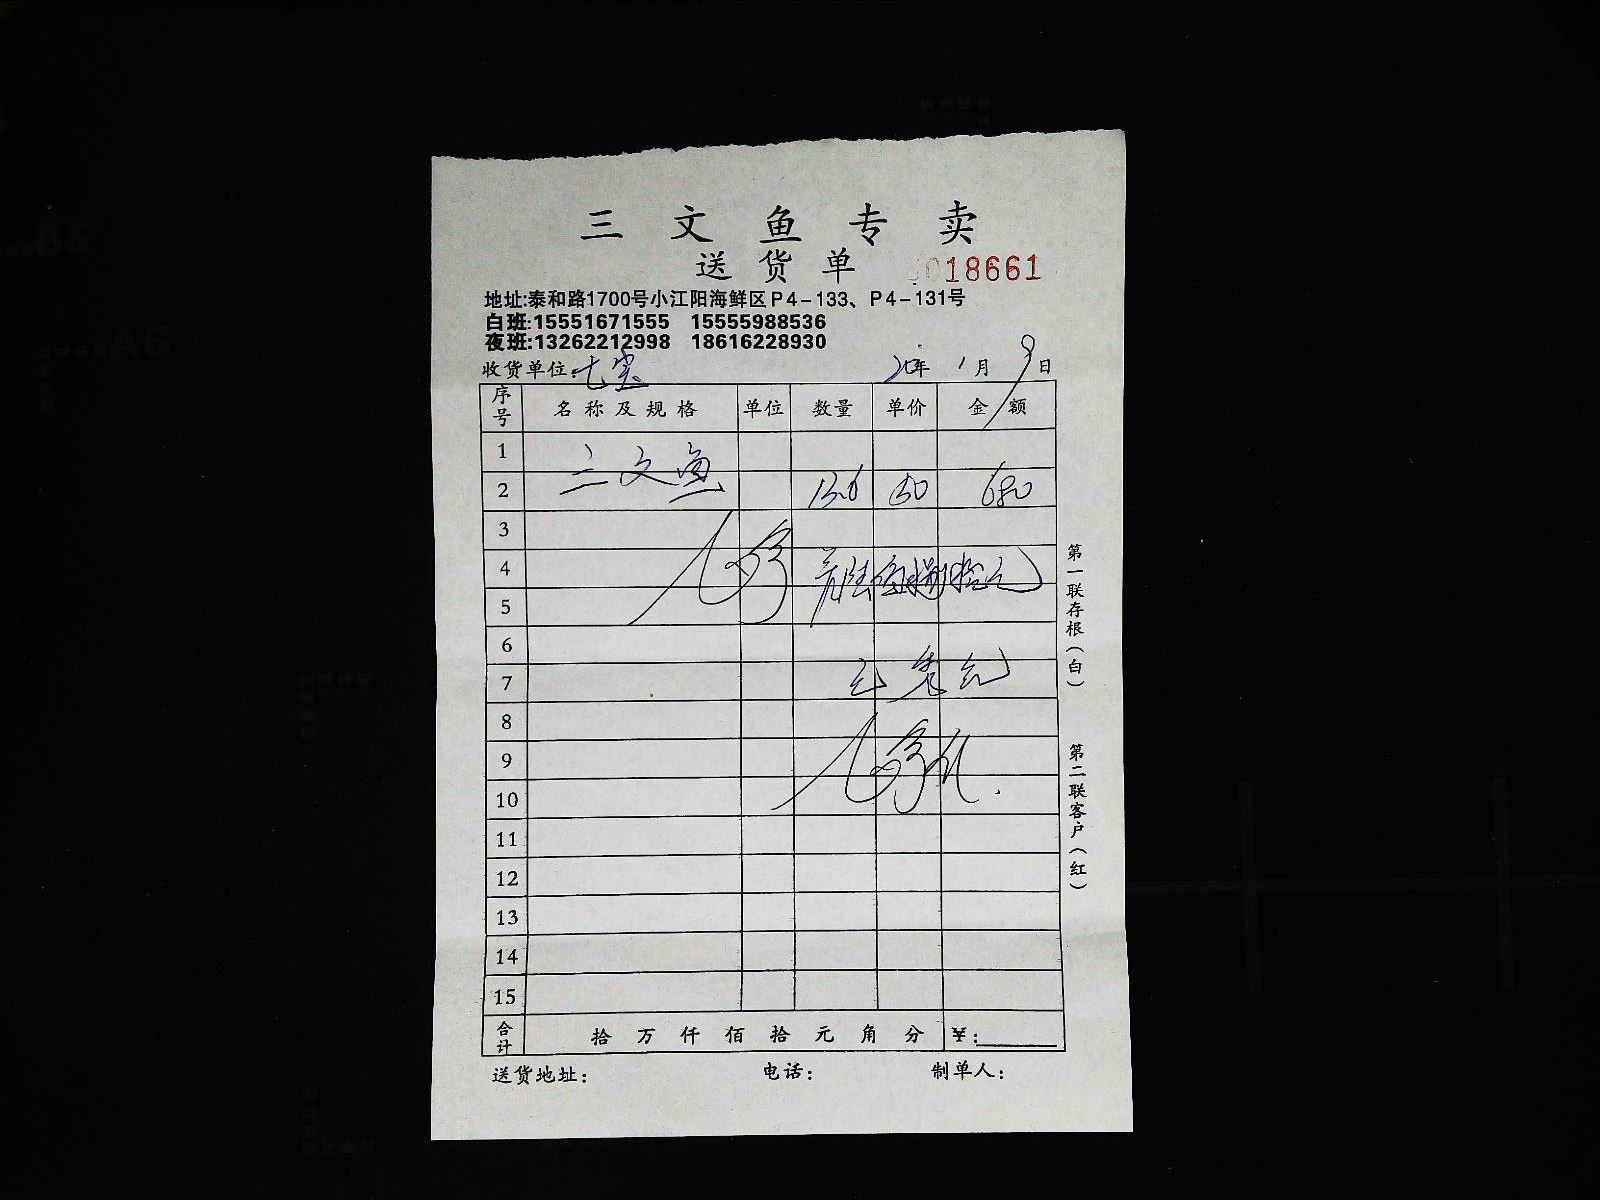 三文鱼专卖
送货单 018661
地址:泰和路1700号小江阳海鲜区P4-133、P4-131号
白班:15551671555 15555988536
夜班:13262212998 18616228930
收货单位:七宝 20年 1月 9日
序号 名称及规格 单位 数量 单价 金额
1
2 三文鱼 13.6 50 680
3
4 陆佰捌拾元
5
6
7
8
9
10
11
12
13
14
15
合计 拾万仟佰拾元角分 ¥:
送货地址: 电话: 制单人:
第一联存根(白)
第二联客户(红)